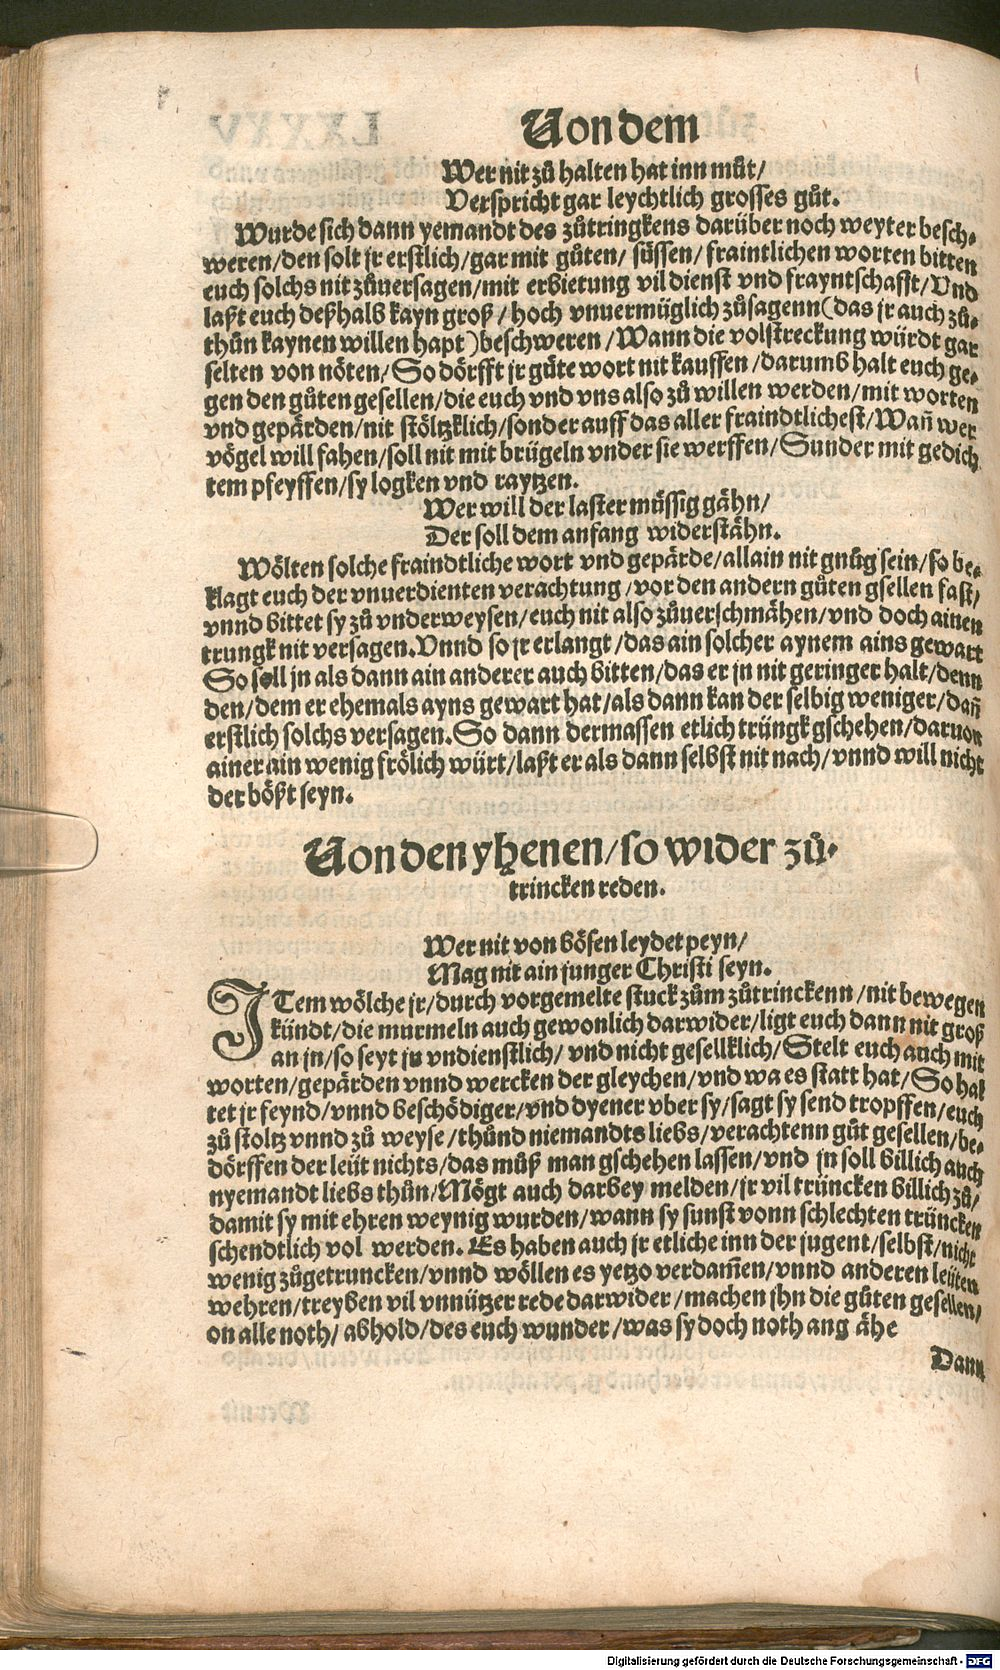 Von dem
Wer nit zů halten hat inn můt/
Verspricht gar leychtlich grosses gůt.
Wurde sich dann yemandt des zůtringkens darüber noch weyter besch-
weren/den solt jr erstlich/gar mit gůten/ süssen/fraintlichen worten bitten
euch solchs nit zůuersagen/mit erbietung vil dienst vnd frayntschafft/Vnd
laßt euch deßhalb kayn groß/hoch vnuermüglich zůsagenn(das jr auch zů-
thůn kaynen willen hapt)beschweren/Wann die volstreckung würdt gar
selten von nöten/So dörfft jr gůte wort nit kauffen/darumb halt euch ge-
gen den gůten gesellen/die euch vnd vns also zů willen werden/mit worten
vnd gepärden/nit stöltzklich/sonder auff das aller fraindtlichest/Wañ wer
vögel will fahen/soll nit mit brügeln vnder sie werffen/Sunder mit gedich
tem pfeyffen/sy logken vnd raytzen.
Wer will der laster müssig gähn/
Der soll dem anfang widerstähn.
Wölten solche fraindtliche wort vnd gepärde/allain nit gnůg sein/so be-
klagt euch der vnuerdienten verachtung/vor den andern gůten gsellen fast/
vnnd bittet sy zů vnderweysen/euch nit also zůuerschmähen/vnd doch ainen
trungk nit versagen.Vnnd so jr erlangt/das ain solcher aynem ains gewart
So soll jn als dann ain anderer auch bitten/das er jn nit geringer halt/denn
den/dem er ehemals ayns gewart hat/als dann kan der selbig weniger/dañ
erstlich solchs versagen.So dann dermassen etlich trüngk gschehen/daruon
ainer ain wenig frölich würt/laßt er als dann selbst nit nach/vnnd will nicht
der bößt seyn.
Von den yhenen/so wider zů-
trincken reden.
Wer nit von bösen leydet peyn/
Mag nit ain junger Christi seyn.
ITem wölche jr/durch vorgemelte stuck zům zůtrinckenn/nit bewegen
kündt/die murmeln auch gewonlich darwider/ligt euch dann nit groß
an jn/so seyt jn vndienstlich/ vnd nicht gesellklich/Stelt euch auch mit
worten/gepärden vnnd wercken der gleychen/vnd wa es statt hat/So hal
tet jr feynd/vnnd beschödiger/vnd dyener vber sy/sagt sy send tropffen/euch
zů stoltz vnnd zů weyse/thůnd niemandts liebs/verachtenn gůt gesellen/be-
dörffen der leüt nichts/das můß man gschehen lassen/vnd jn soll billich auch
nyemandt liebs thůn/Mögt auch darbey melden/jr vil trüncken billich zů/
damit sy mit ehren weynig wurden/wann sy sunst vonn schlechten trüncken
schendtlich vol werden. Es haben auch jr etliche inn der jugent/selbst/nicht
wenig zůgetruncken/vnnd wöllen es yetzo verdam̃en/vnnd anderen leüten
wehren/treyben vil vnnützer rede darwider/machen jhn die gůten gesellen/
on alle noth/ abhold/des euch wunder/was sy doch noth ang ähe
Dann
Digitalisierung gefördert durch die Deutsche Forschungsgemeinschaft - DFG